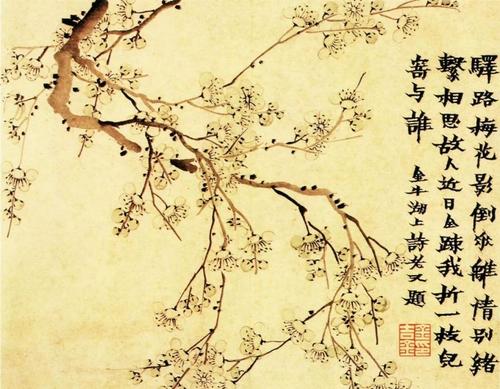 驛路梅花影倒垂離情別緒
繫相思故人近日全疎我折一枝兒
寄与誰
金牛湖上詩老又題